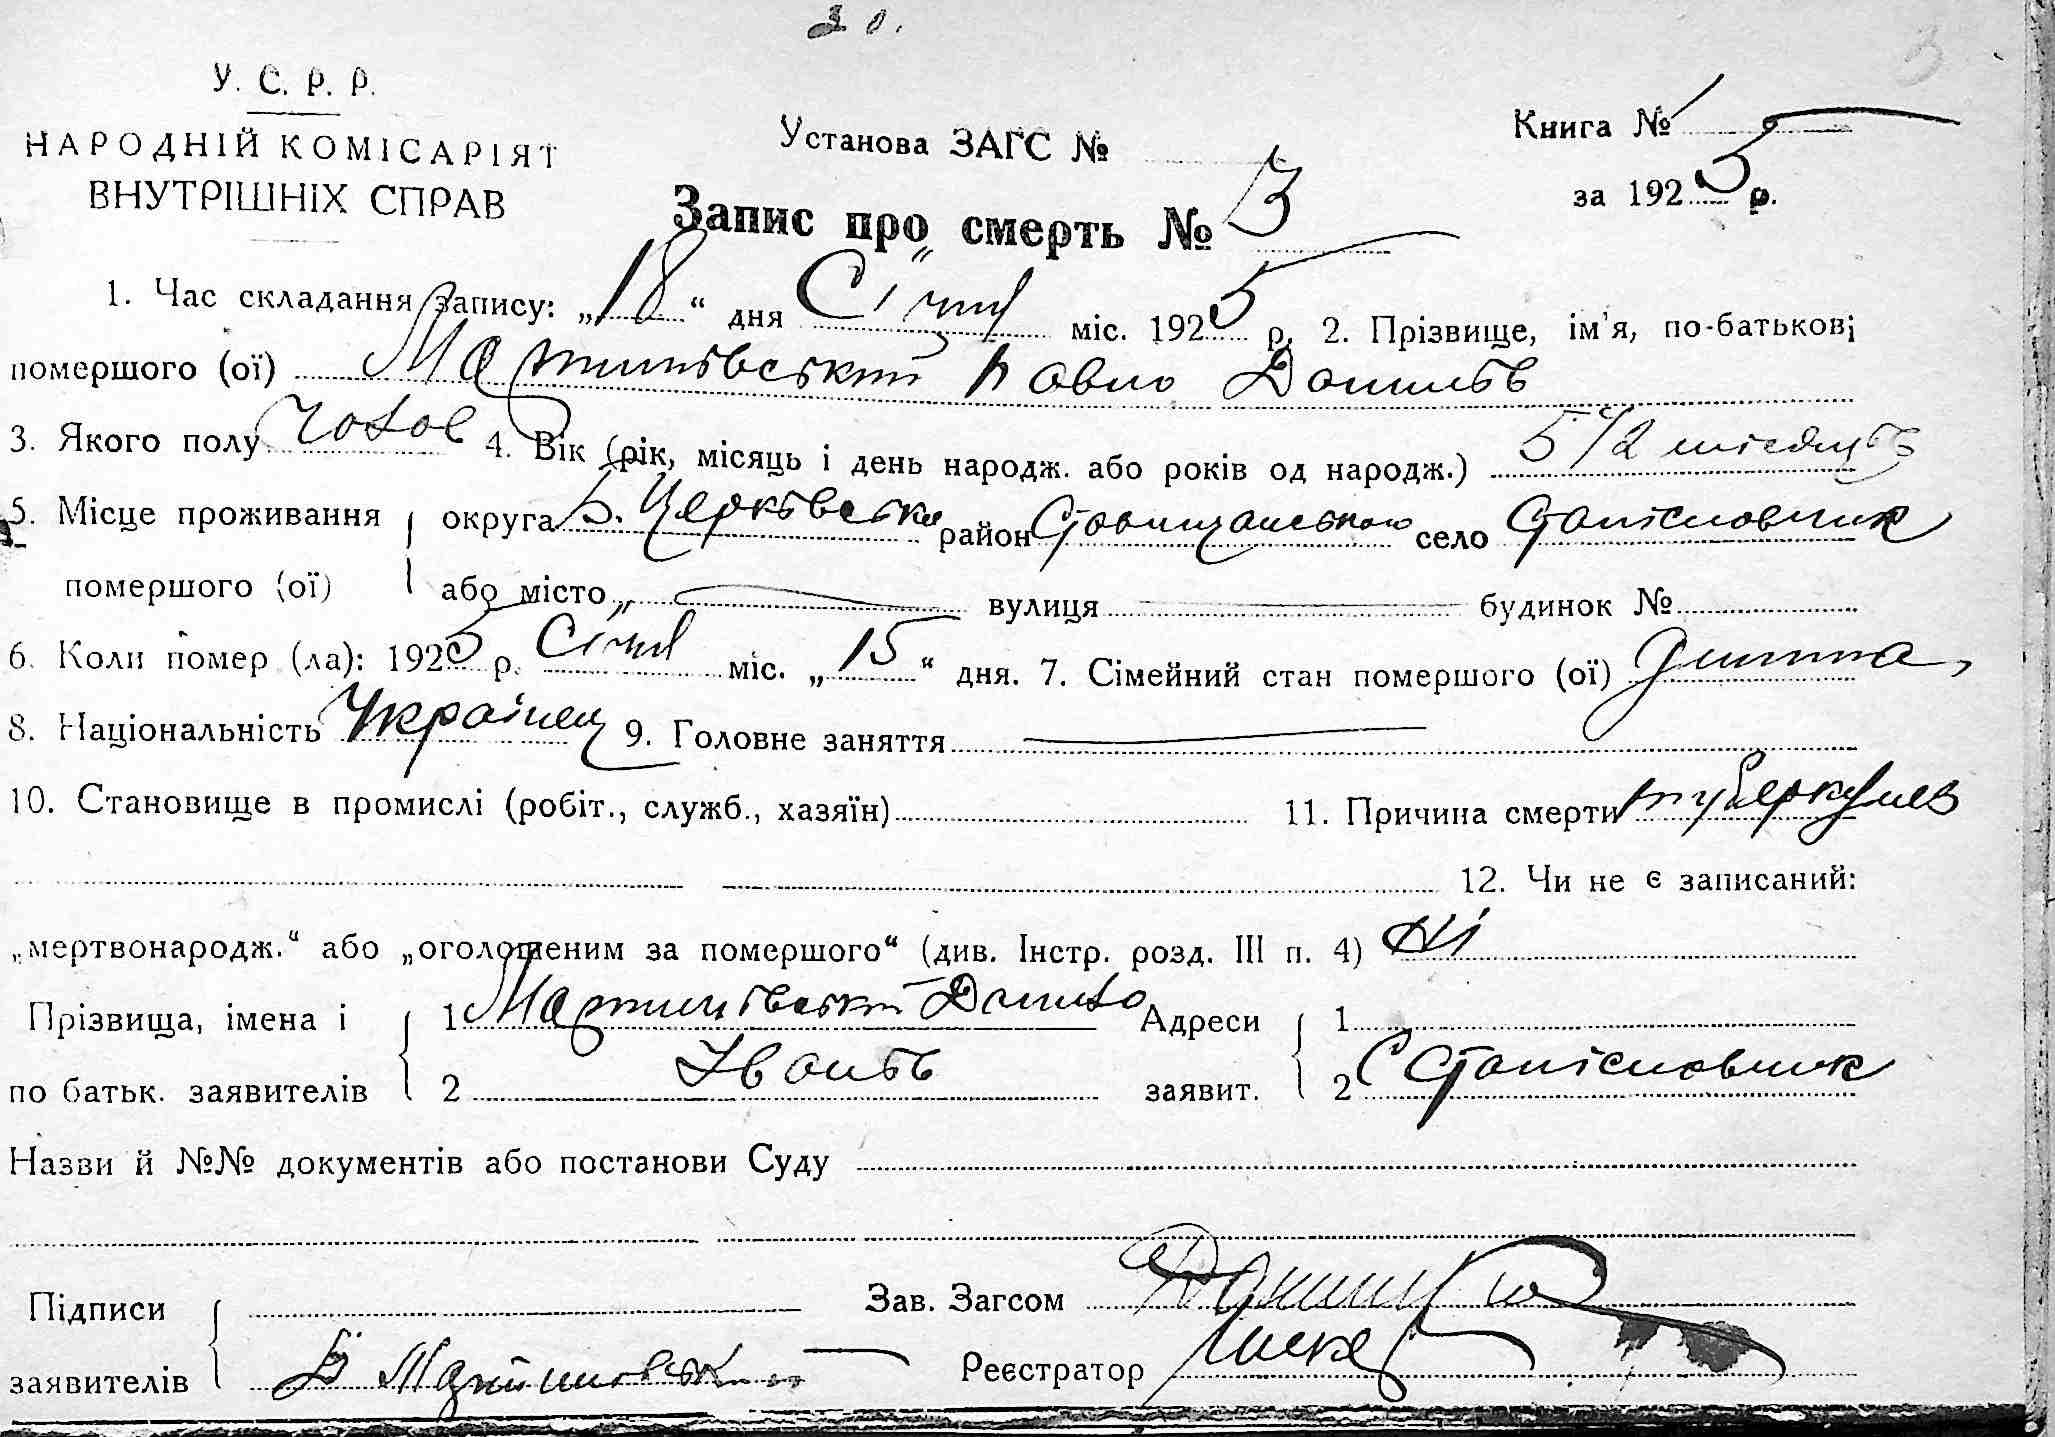 У. С. Р. Р.
НАРОДНІЙ КОМІСАРІЯТ
ВНУТРІШНІХ СПРАВ
Установа ЗАГС №
Книга №
за 1925 р.
Запис про смерть № 3
1. Час складання запису: „18“ дня Січня міс. 1925 р. 2. Прізвище, ім'я, по-батькові
помершого (ої) Мартинівський Павло Данилів
3. Якого полу чолов 4. Вік (рік, місяць і день народж. або років од народж.) 5 1/2 місяців
5. Місце проживання округа Б. Церківська район Ставищанського село Станіславчик
помершого (ої) або місто вулиця будинок №
6. Коли помер (ла): 1925 р. Січня міс. „15“ дня. 7. Сімейний стан помершого (ої) дитина,
8. Національність Українец 9. Головне заняття
10. Становище в промислі (робіт., служб., хазяїн) 11. Причина смерти туберкульоз
12. Чи не є записаний:
„мертвонародж.“ або „оголошеним за помершого“ (див. Інстр. розд. III п. 4) Ні
Прізвища, імена і 1 Мартинівський Данило Адреси 1
по батьк. заявителів 2 Іванів заявит. 2 С Станіславчик
Назви й №№ документів або постанови Суду
Підписи Зав. Загсом
заявителів Реєстратор